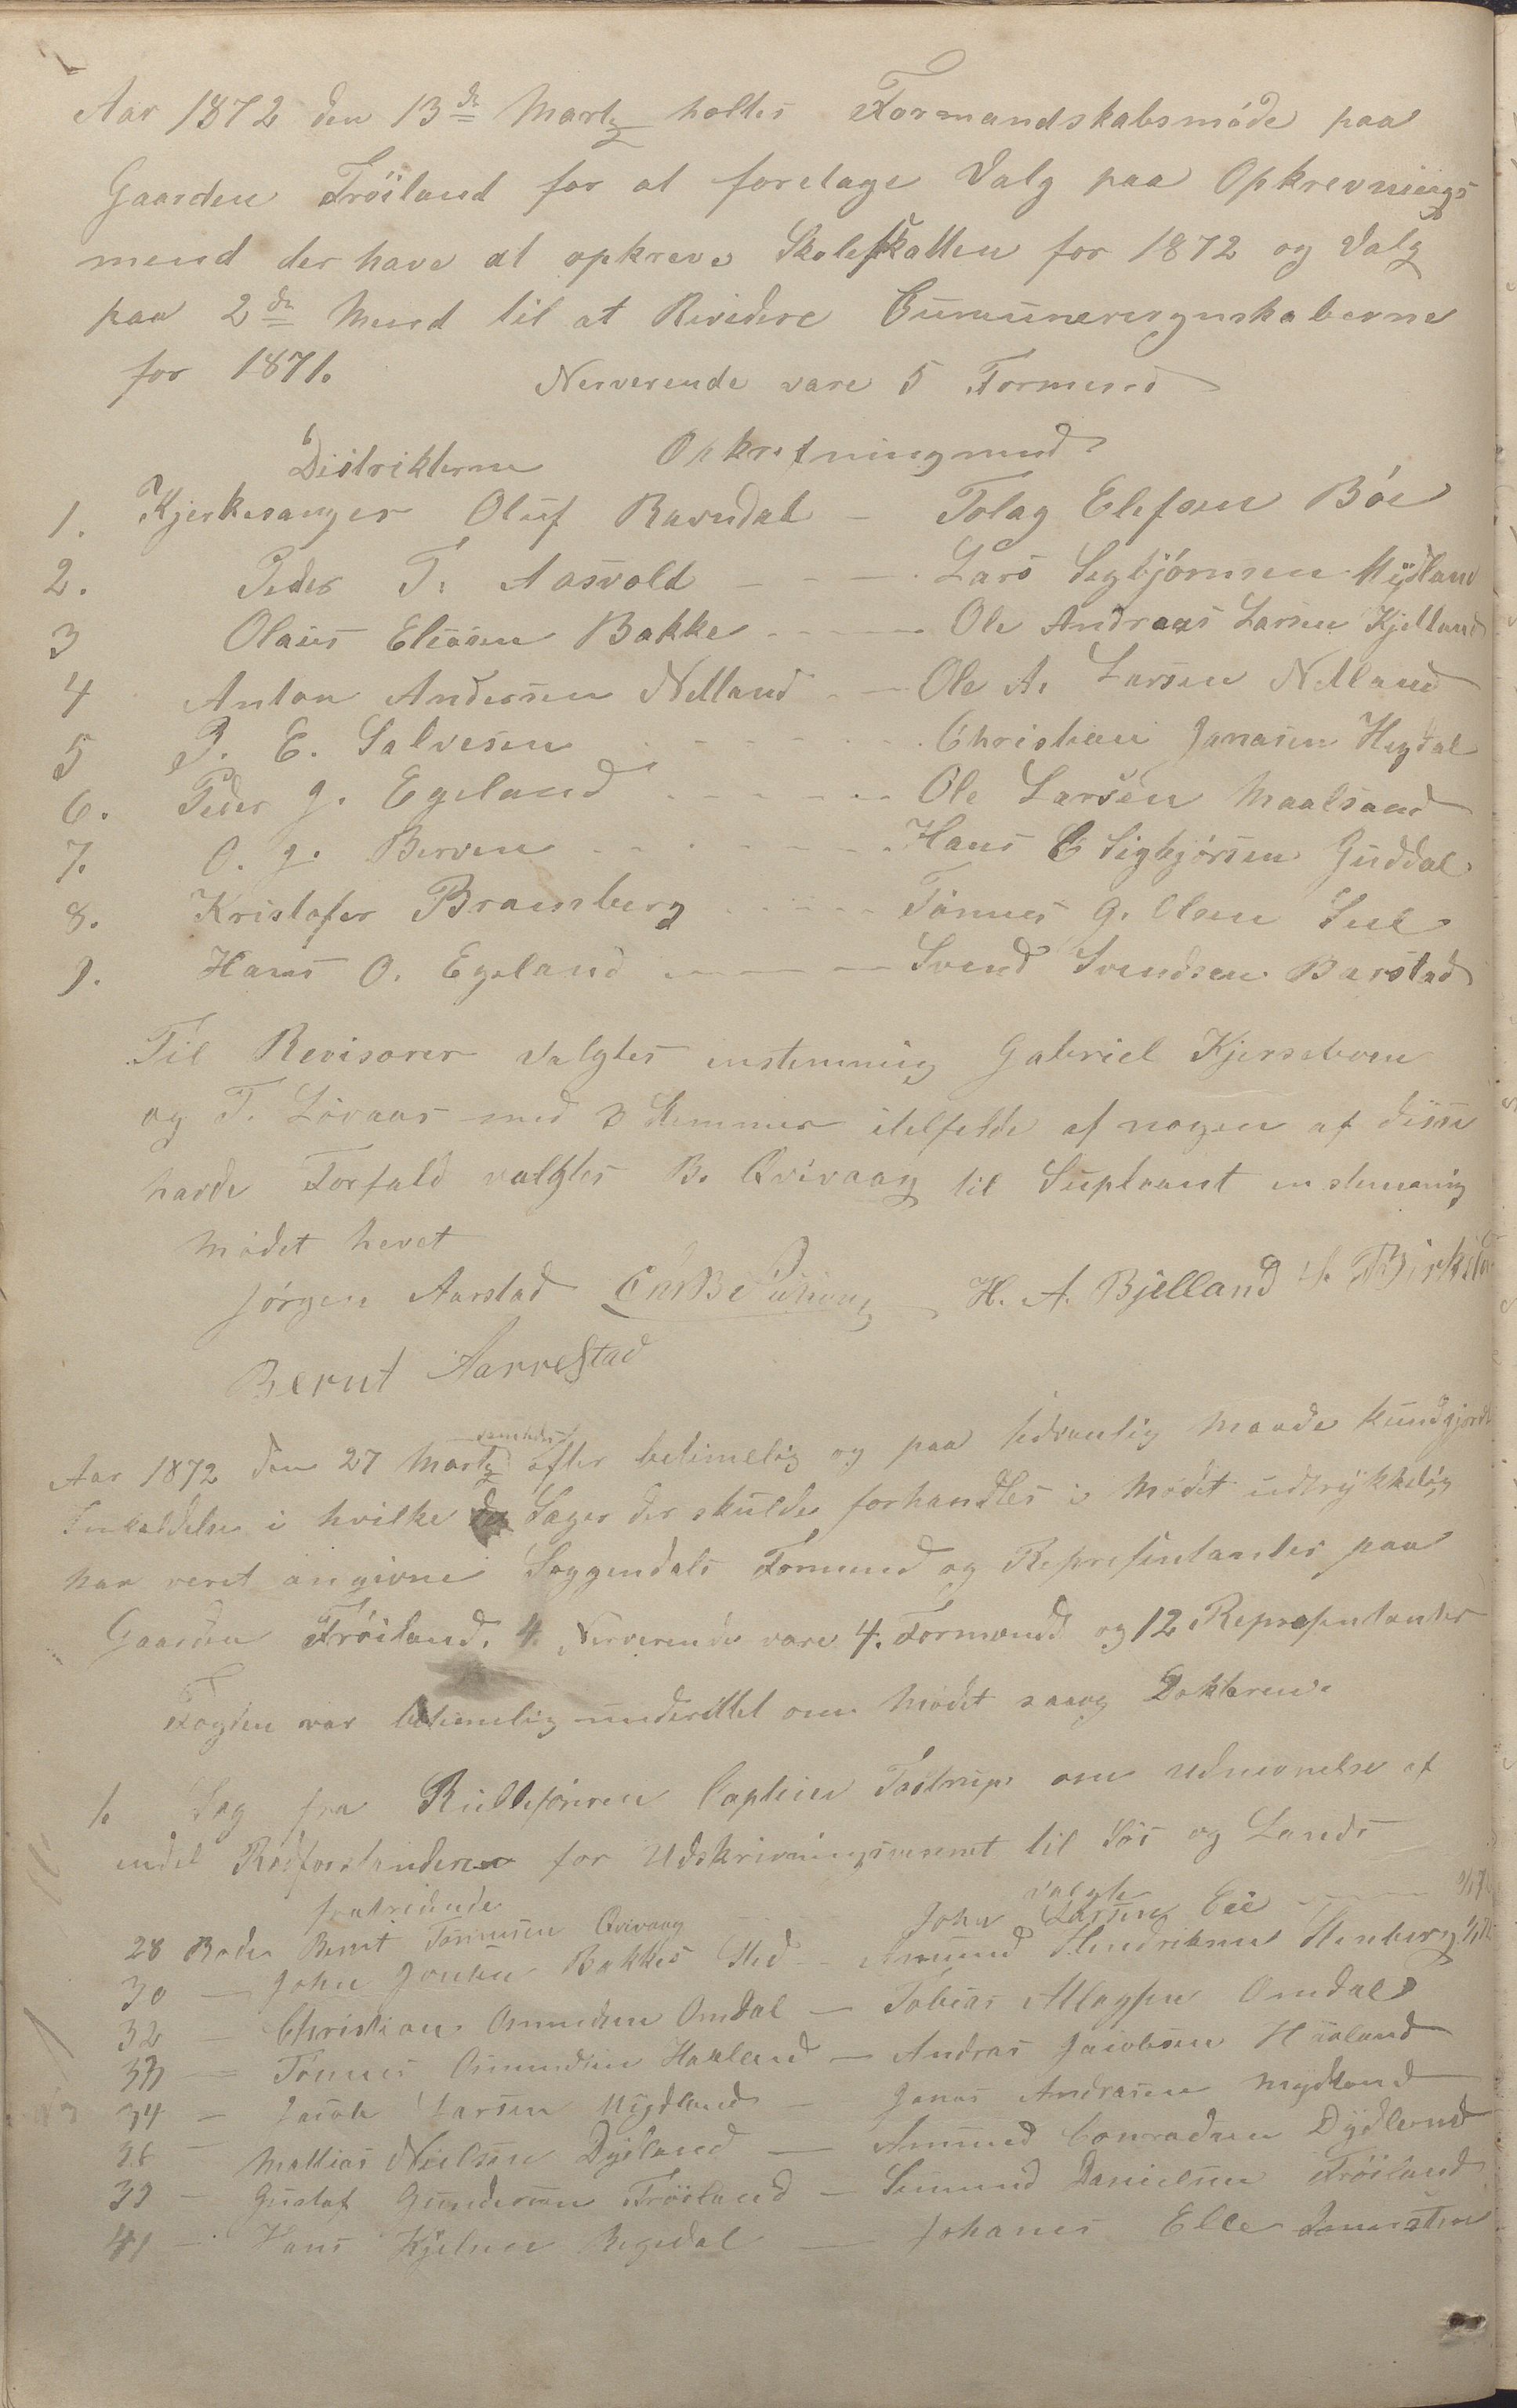 Aar 1872 den 13de Marty holtes Formandskabsmøde paa
Gaarden Frøiland for at foretage Valg paa Opkrevnings
mend der have at opkreve Skoleskatten for 1872 og Valg
paa 2de Mend til at Revidere Cumuneregnskaberne
for 1871. Nerverende vare 5 Formend
Distrikterne Opkrefningmend
1. Kjerkesanger Oluf Ravndal - Tolag Elefsen Böe
2. Peder T. Aasvold - - - Lars Segbjörnsen Mydland
3 Olaus Eliasen Bakke - - - Ole Andreas Larsen Kjelland
4 Anton Andersen Netland - - Ole A. Larsen Netland
5 P. E. Salvesen - - - - Christian Janasen Hegdal
6. Peder J. Egeland - - - - Ole Larsen Maalsand
7. O. J. Berven - - - - Hans C Sigbjørsen Guddal
8. Kristofer Bramberg - - - - Tönnes G. Olsen
9. Hans O. Egeland - - - Svend Svendsen Barstad
Til Revisorer valgtes enstemmig Gabriel Kjerseboen
og T. Lövaas med 3 Stemmer itelfelde af nogen af disse
havde Forfald valgtes B. Qvivaag til Supleant en stemmig
Mödet hevet
Jörgen Aarstad H. A. Bjelland
Bernt Aarrestad
Aar 1872 den 27 Marty samledes efter betimelig og paa sedvanlig maade kundgjordt
Inkaldelse i hvilke de Sager der skulde forhandles i Mödet udtrykkelig
har veret angivne Soggendals Formend og Represintanter paa
Gaarden Fröiland. 4 Nerverende vare 4. Formend og 12 Represintanter
Fogden var betimelig underettet om Mödet saaog Doktoren.
1. Sag fra Rulleförer Captein Tostrup om udnevnelse af
endel Rodforstandere for Udskrivningsvesenet til Söes og Lands
fratredende valgte
28 Rode Bernt Tönnesen Qvivaag John Larsen Eie
30 - John Jonsen Bakkes Sted - Amund Hendriksen Stenberg
32 - Christian Omundsen Omdal - Tobias Atlagsen Omdal
33 - Tönnes Osmundsen Haaland - Andreas Jacobsen Haaland
34 - Jacob Larsen Mydland - Jonas Andreasen Mydland
36 - Mattias Neilsen Dydland - Amund Conradsen Dydland
39 - Gustaf Gundersen Fröiland - Semund Danielsen Fröiland
41 - Hans Kjelsen Regedal - Johanes Elle